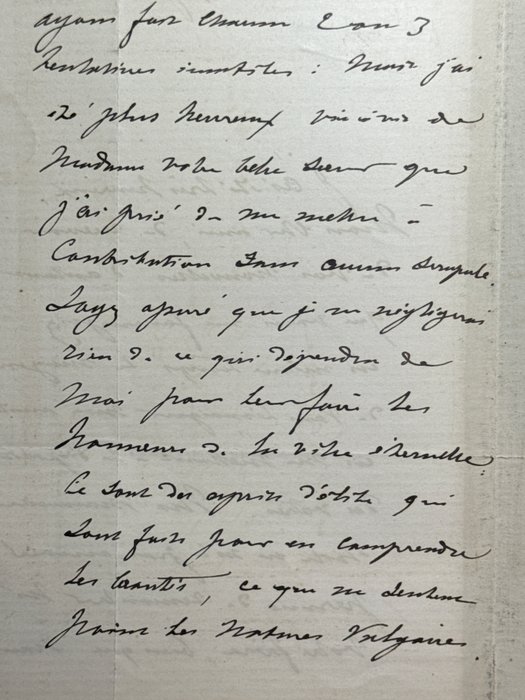 ayant fait chacun 2 ou 3
tentatives inutiles : Mais j'ai
été plus heureux vis à vis de
Madame votre belle soeur que
j'ai prié de me mettre à
Contribution sans aucun scrupule.
Soyez assuré que je ne négligerai
rien de ce qui dépendra de
moi pour leur faire les
honneurs de la ville éternelle.
Ce sont des esprits d'élite qui
sont faits pour en comprendre
les beautés, ce que ne
point les natures vulgaires.